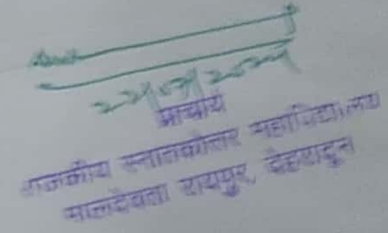 प्राचार्य
राजकीय स्नातकोत्तर महाविद्यालय
मालदेवता रायपुर, देहरादून